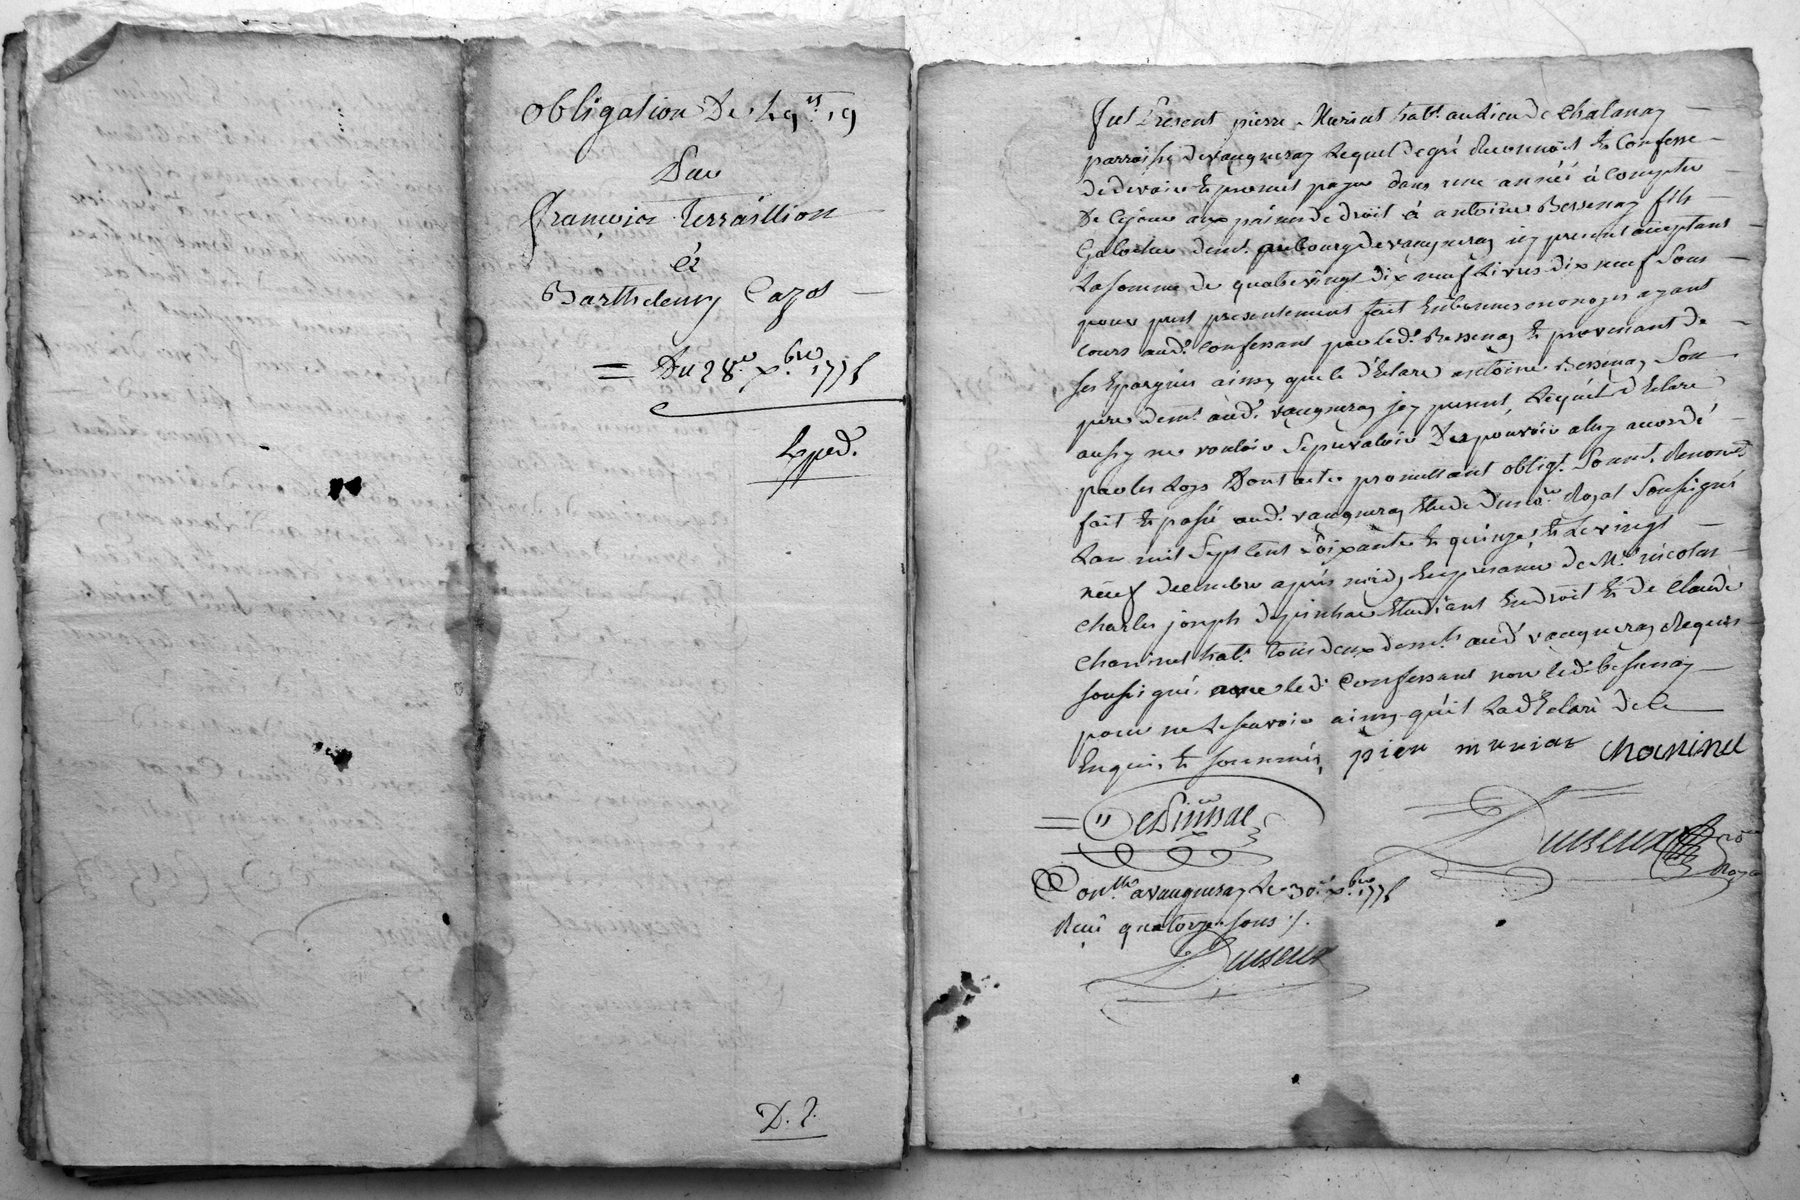 obligation De 49ᵗᵗ 19
Par
françois terraillion
à
Barthelemy Cazot
= Du 28.ᵉ x.ᵇʳᵉ 1775
Exped.
D. 2.
fut Present pierre Muriat habt. au lieu de Chalanay
parroisse de vaugneray Lequel de gré Reconnoit Et Confesse
de devoir Et promet payer dans une année à Compter
De Cejour aux peines de droit à antoine Bessenay fils
demt. au bourg de vaugneray icy present acceptant
La somme de quatrevingt dix neuf Livres dix neuf Sous
pour prest presentement fait En bonnes monoyes ayant
Cours audt. Confessant par ledt. Bessenay Et provenant de
ses Epargnes ainsy que le d'Eclare antoine Bessenay Son
pere demt. audt. vaugneray icy present, Lequel d'Eclare
aussy ne vouloir Se prevaloir Des pouvoir a luy accordé
par les Loys Dont acte promettant obligt. Soumt. Renonct.
fait Et passé audt. vaugneray Etude du nore. Royal Soussigné
L'an mil Sept Cent Soixante Et quinze Et Le vingt
neuf decembre après midy En presence de Me. nicolas
charles joseph depinhac Etudiant En droit Et de Claude
Chaninel habt. tous deux demt. audt. vaugneray Requis
soussignés avec ledt. Confessant non ledt. bessenay
pour ne Le scavoir ainsy qu'il La d'Eclaré de ce
Enquis Et sommés, pier muriat Chaninel
= " Depinhac
Dusseux nore Royal
Contllé. a vaugneray Le 30.ᵉ x.ᵇʳᵉ 1775
Reçu quatorze sous ./.
Dusseux